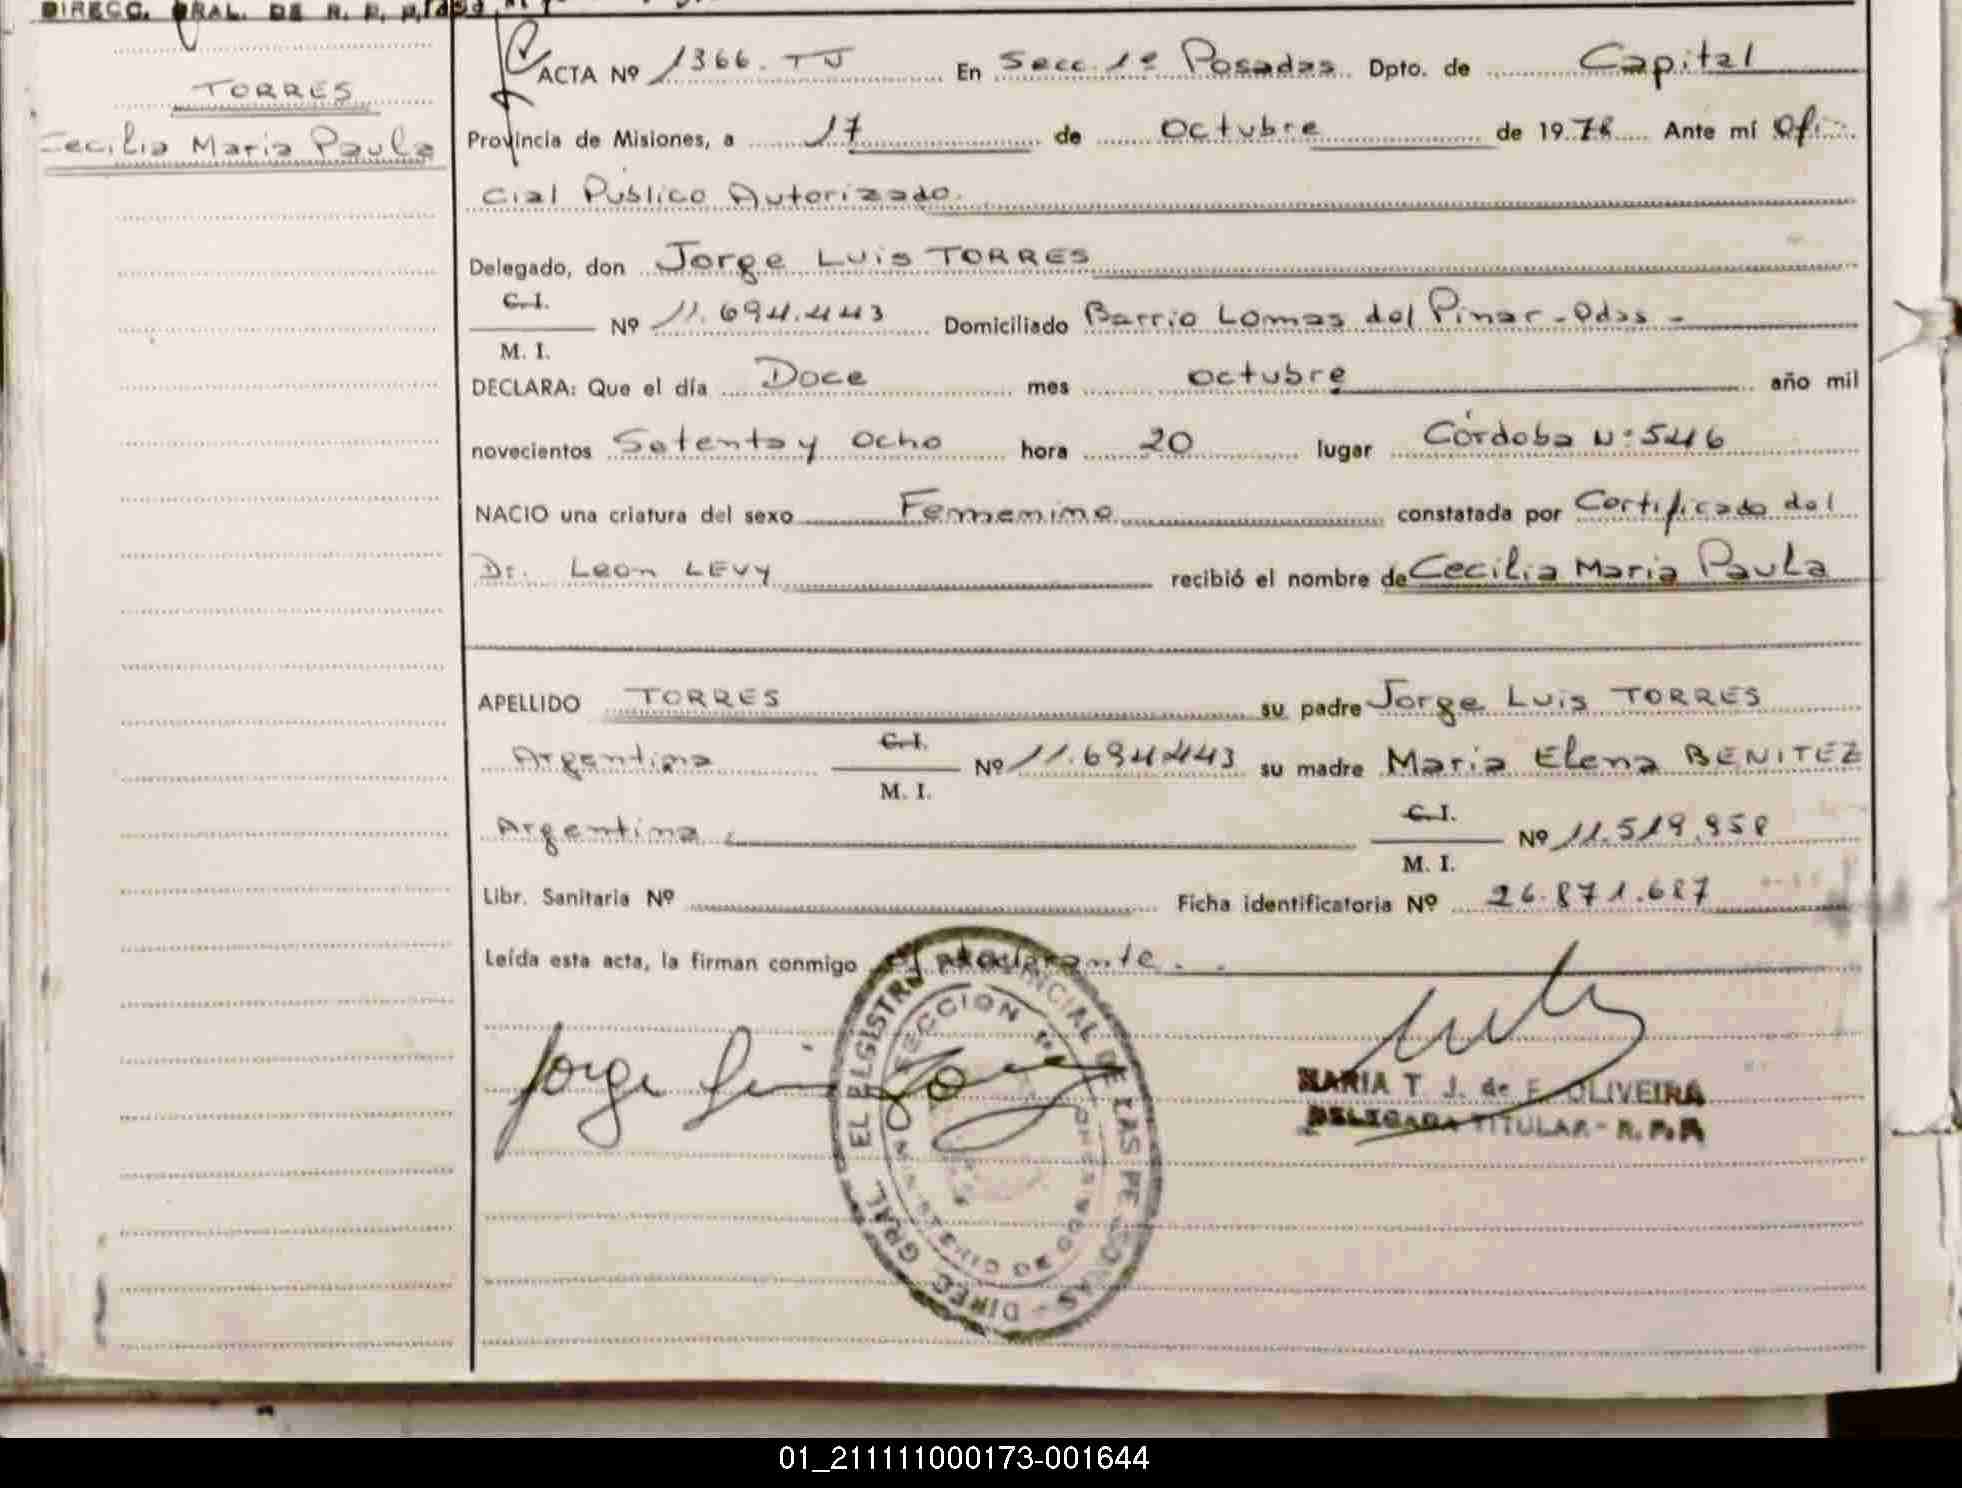 DIRECC. GRAL. DE R. P. P.
TORRES
Cecilia Maria Paula
ACTA Nº 1366. TJ En Secc. 1º Posadas Dpto. de Capital
Provincia de Misiones, a 17 de Octubre de 1978 Ante mí Ofi-
cial Público Autorizado.
Delegado, don Jorge Luis TORRES
C.I.
M. I.
Nº 11.694.443 Domiciliado Barrio Lomas del Pinar - Pdas -
DECLARA: Que el día Doce mes octubre año mil
novecientos Setenta y ocho hora 20 lugar Córdoba Nº 546
NACIO una criatura del sexo Femenino constatada por Certificado del
Dr. Leon LEVY recibió el nombre de Cecilia Maria Paula
APELLIDO TORRES su padre Jorge Luis TORRES
Argentina C.I. M. I. Nº 11.694.443 su madre Maria Elena BENITEZ
Argentina C.I. M. I. Nº 11.519.958
Libr. Sanitaria Nº Ficha identificatoria Nº 26.871.687
Leída esta acta, la firman conmigo el declarante.
Jorge Luis
EL REGISTRO PROVINCIAL DE LAS PERSONAS - DIREC. GRAL.
SECCION 1º
MARIA T. J. de F. OLIVEIRA
DELEGADA TITULAR - R. P. P.
01_211111000173-001644